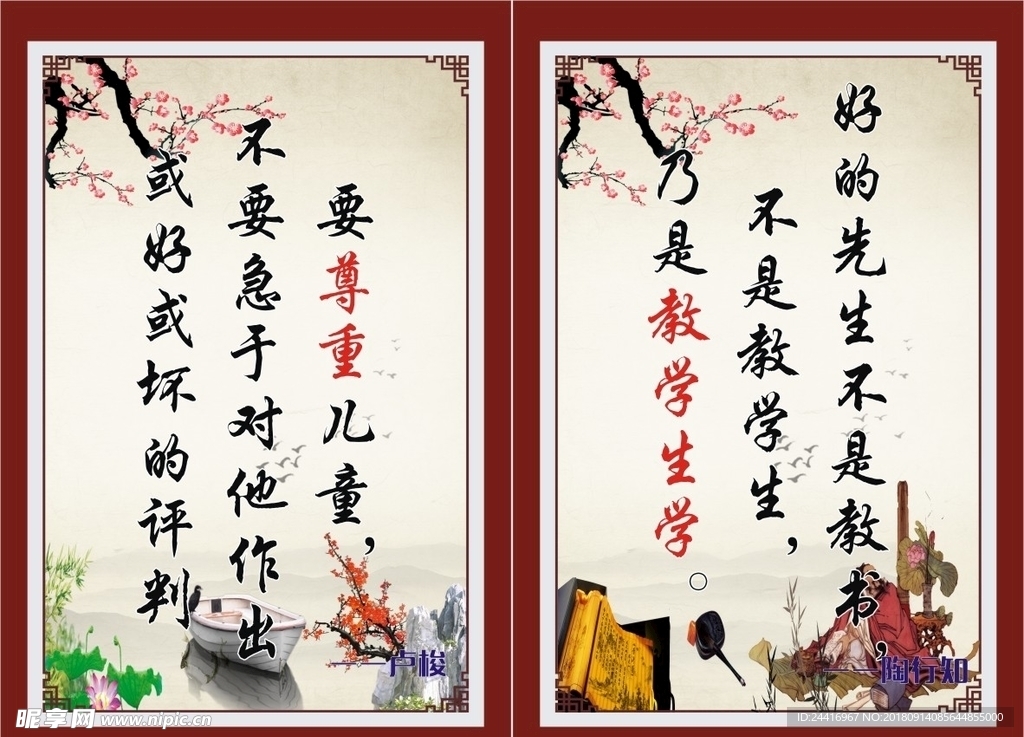 要尊重儿童，
不要急于对他作出
或好或坏的评判
——卢梭
好的先生不是教书，
不是教学生，
乃是教学生学。
——陶行知
昵享网 www.nipic.cn
ID:24416967 NO:20180914085644855000